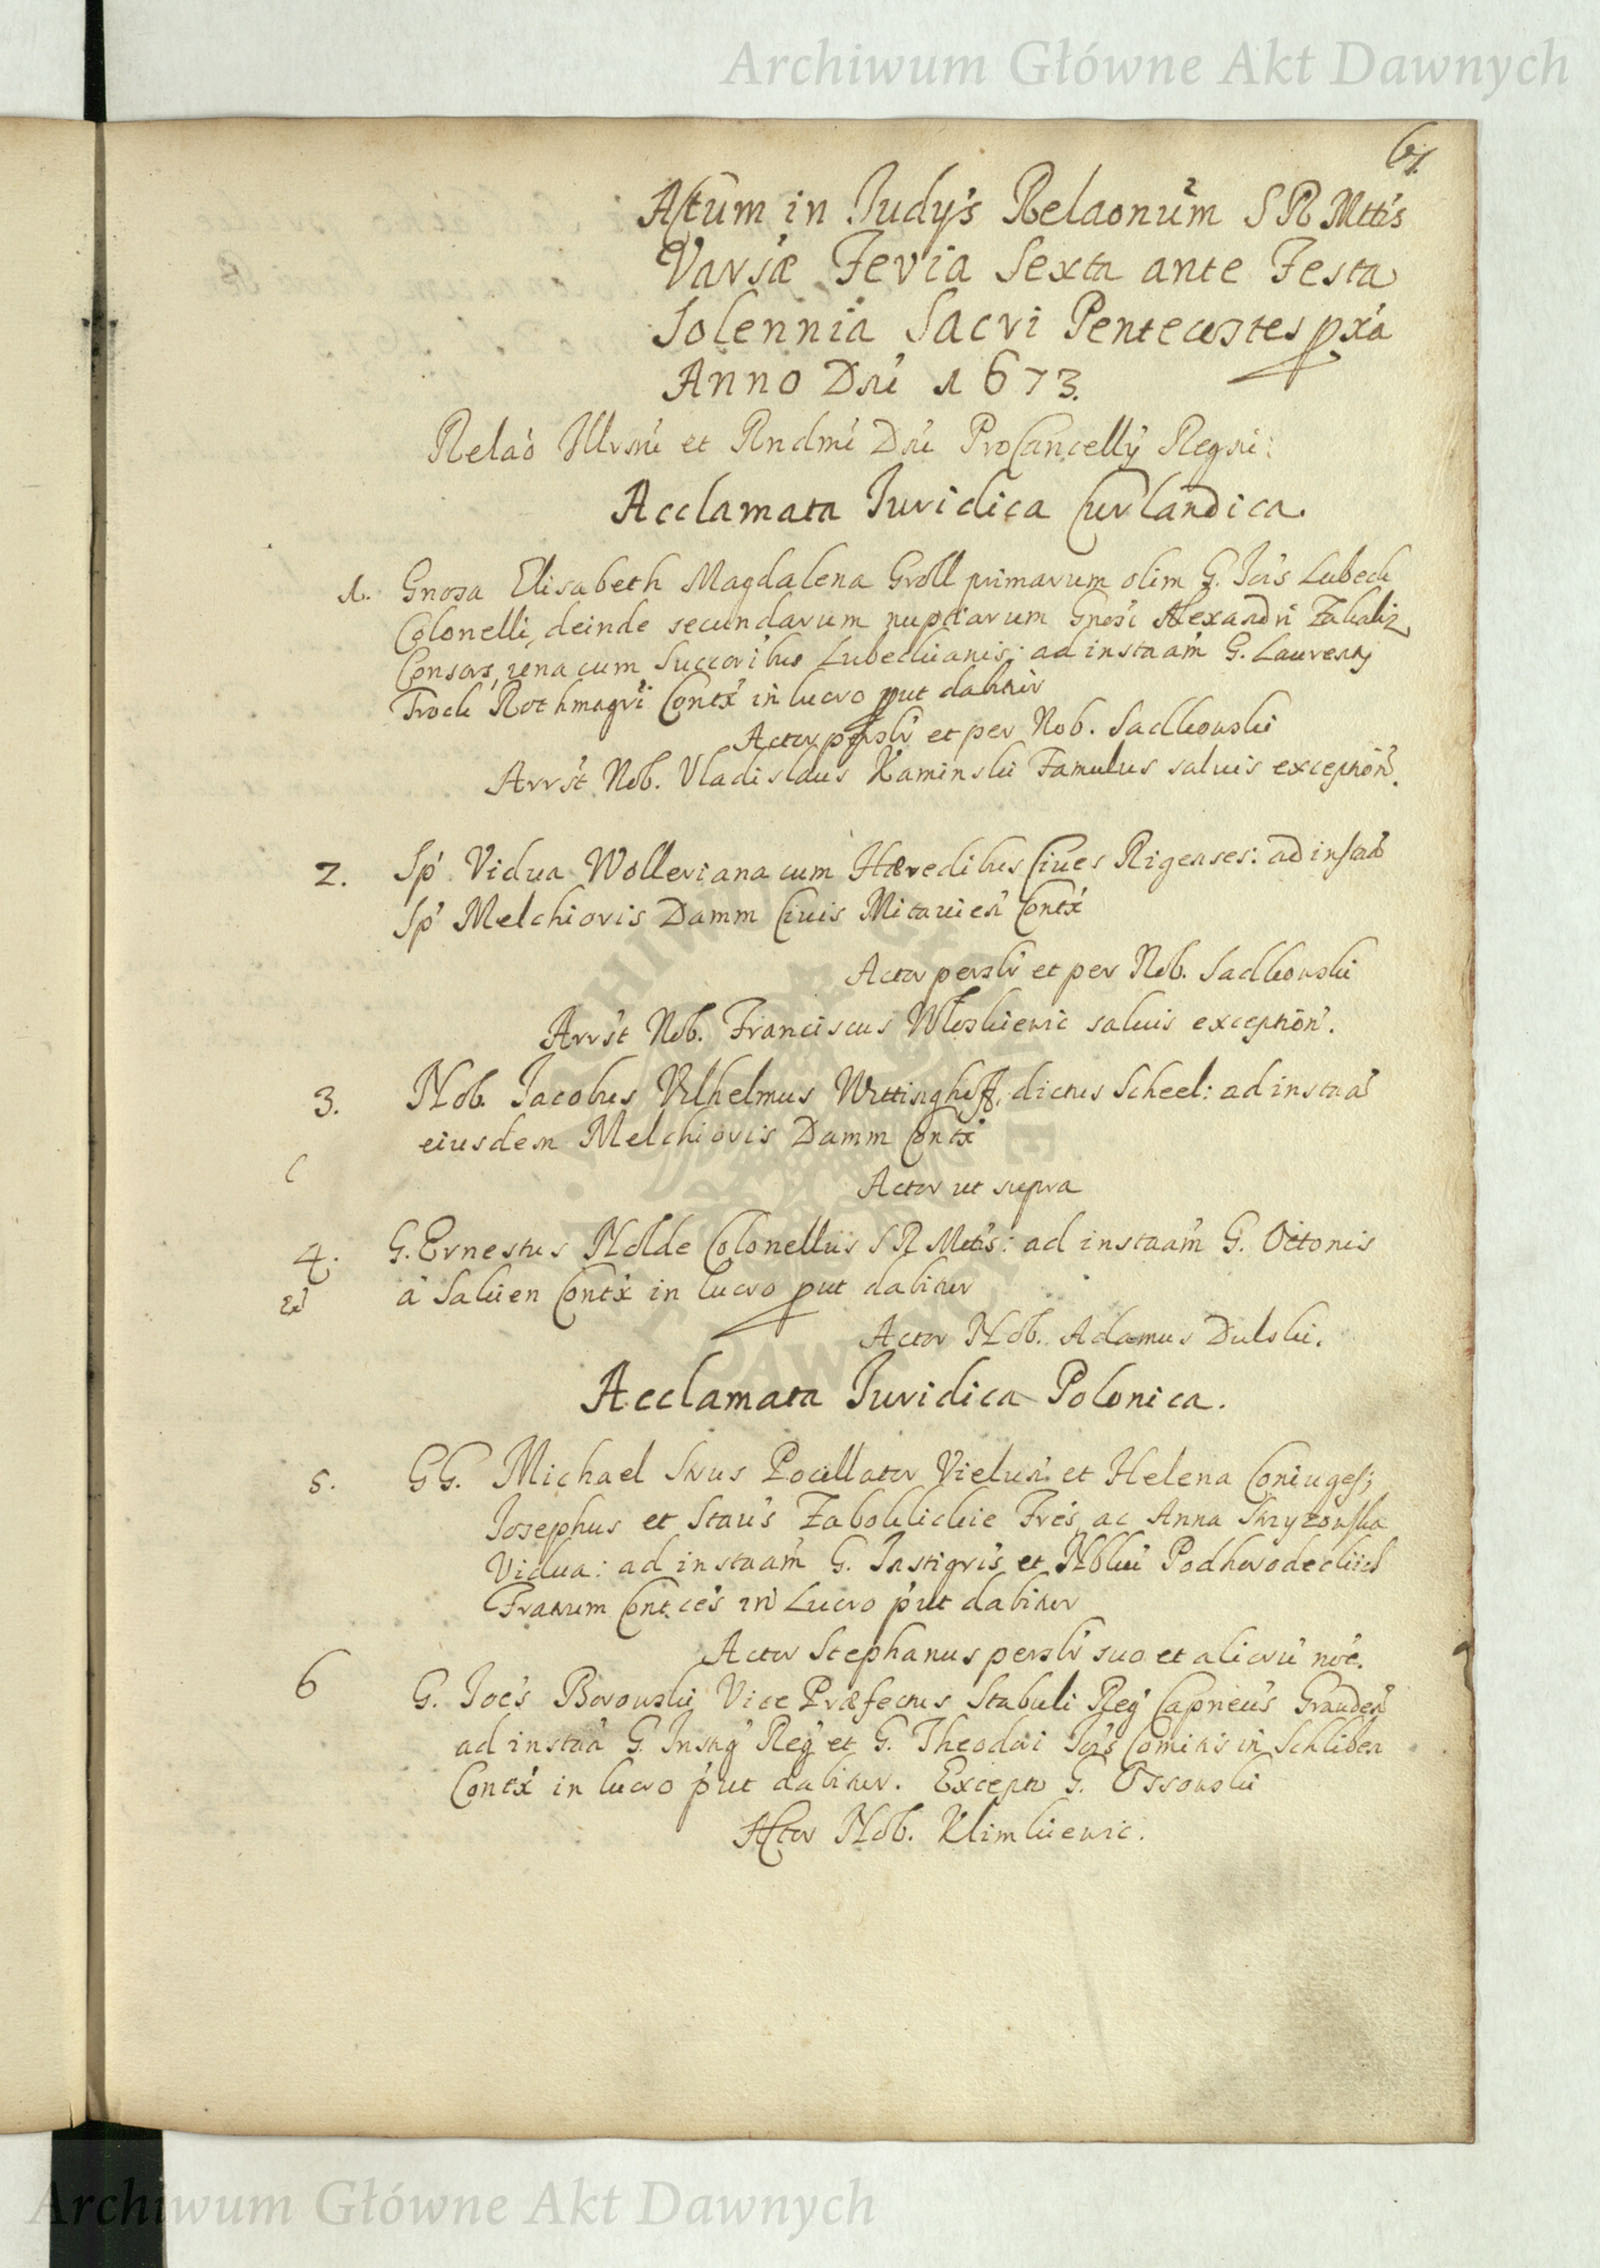 Archiwum Główne Akt Dawnych
67.
Actum in Judys Relaonum S R Mttis
Varsæ Feria Sexta ante Festa
Solennia Sacri Pentecostes pxa
Anno Dni 1673.
Relao Illrmi et Rndmi Dni ProCancellÿ Regni:
Acclamata Juridica Curlandica.
1. Gnosa Elisabeth Magdalena Groll primarum olim G. Jois Lubeck
Colonelli, deinde secundarum nuptiarum Gnosi Alexandri
Consors, una cum Succoribus Lubeckianis: ad instaam G. Laurentÿ
Frock Rothmagri Contx in lucro put dabitur
Actor persolr et per Nob. Sadkowski
Arrst Nob. Vladislaus Kaminski Famulus salvis exception.
2. Sp Vidua Wolleriana cum Hæredibus Cives Rigenses: ad instaa
Sp Melchioris Damm Civis Mitavien Contx
Actor persolr et per Nob. Sadkowski
Arrst Nob. Franciscus salvis exception.
3. Nob. Jacobus Vilhelmus Wittinghoff, dictus Scheel: ad instaa
eiusdem Melchioris Damm Contx
C
Actor ut supra
4. G. Ernestus Nolde Colonellus S R Mttis: ad instaam G. Ottonis
a Saken Contx in lucro put dabitur
Actor Nob. Adamus Dulski.
Acclamata Juridica Polonica.
5. GG. Michael Srus Pocillator Vielun. et Helena Coniuges;
Josephus et Staus Zaboklickie Fres, ac Anna
Vidua: ad instaam G. Instigris et Podhorodeckich
Fratrum Contces in Lucro put dabitur
Actor Stephanus persolr suo et aliorū noe.
6 G. Joes Borowski Vice Præfectus Stabuli Reg Capneus Grauden
ad instaa G. Instig Reg et G. Theodori Jois Comitis in Schliben
Contx in lucro put dabitur. Excepto G. Ossowski
Actor Nob. Klimkiewic.
Archiwum Główne Akt Dawnych